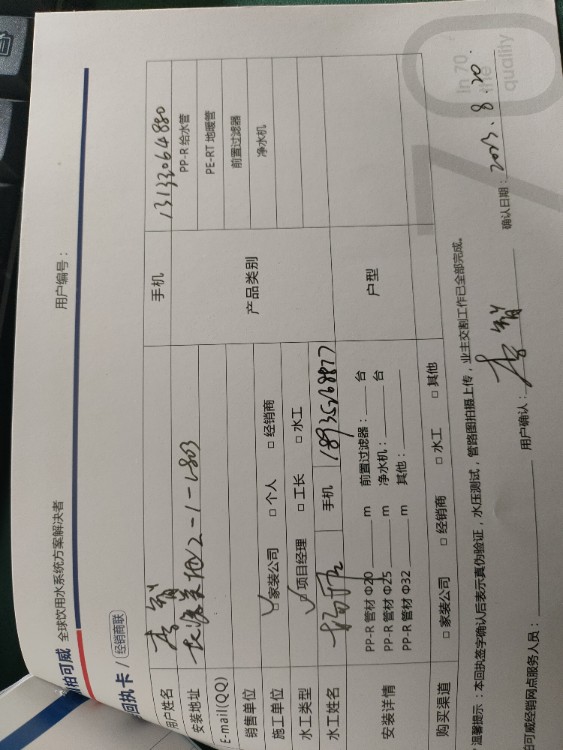 柏可威 全球饮用水系统方案解决者
用户编号：
回执卡 / 经销商联
用户姓名 李智 手机 13133064880
安装地址 2-1-1803
E-mail(QQ)
产品类别
PP-R 给水管
PE-RT 地暖管
前置过滤器
净水机
销售单位
施工单位 ☑家装公司 □个人 □经销商
水工类型 ☑项目经理 □工长 □水工
水工姓名 手机 18935268877
安装详情
PP-R 管材 Φ20 m 前置过滤器： 台
PP-R 管材 Φ25 m 净水机： 台
PP-R 管材 Φ32 m 其他：
户型
购买渠道 □家装公司 □经销商 □水工 □其他
温馨提示：本回执签字确认后表示真伪验证，水压测试，管路图拍摄上传，业主交割工作已全部完成。
柏可威经销网点服务人员： 用户确认： 李智 确认日期： 2023.8.20.
70
In 70
the
quality